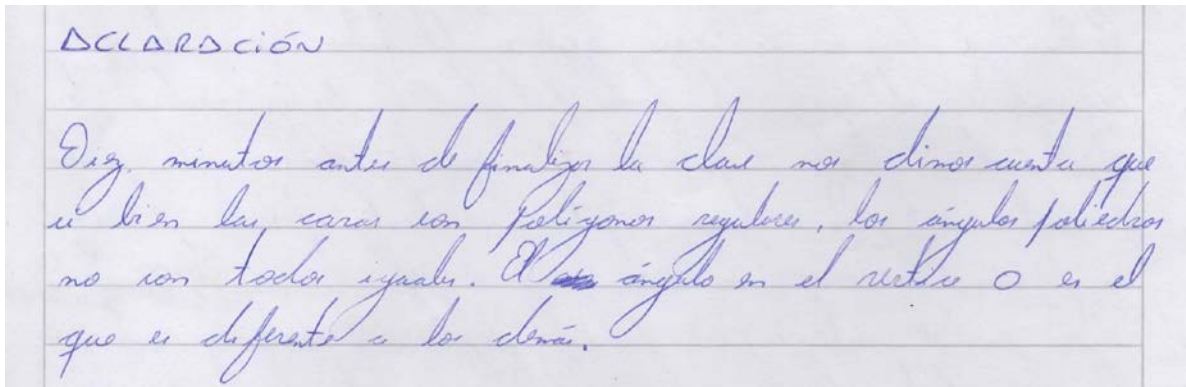 ACLARACIÓN
Diez minutos antes de finalizar la clase nos dimos cuenta que
si bien las caras son Polígonos regulares, los ángulos poliedros
no son todos iguales. El ángulo en el vertice O es el
que es diferente a los demás.